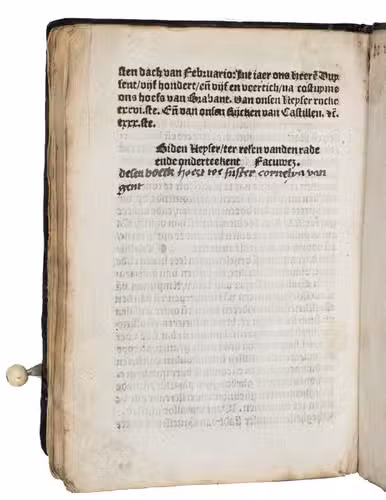 sten dach van Februario: Int iaer ons heerē Duy
sent/vijf hondert/eñ vijf en veertich/na costuyme
ons hoefs van Brabant. Van onsen Keyser rijcke
xxvi.ste. Eñ van onsen Rijcken van Castillen, ec.
xxx.ste.
Biden Keyser/ter relen vanden rade
ende onderteekent Facuwez.
desen boeck hoert toe suster cornelya van
gent